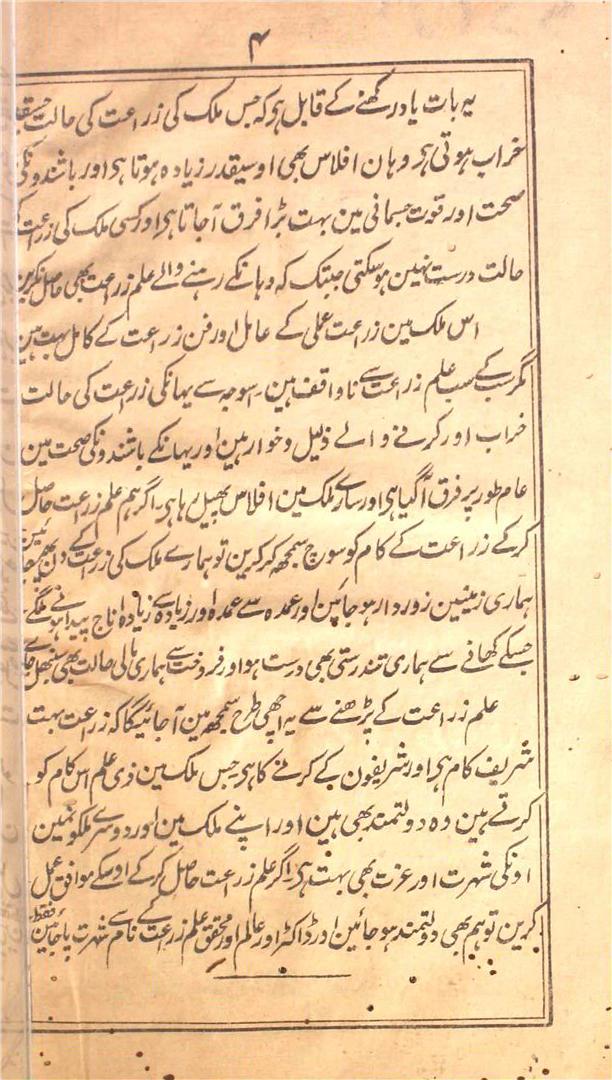 ۴
یہ بات یاد رکھنے کے قابل ہی کہ جس ملک کی زراعت کی حالت جسقدر
خراب ہوتی ہی وہان افلاس بھی اوسیقدر زیادہ ہوتا ہی اور باشندونکی
صحت اور قوت جسمانی مین بہت بڑا فرق آجاتا ہی اور کسی ملک کی زراعت کی
حالت درست نہین ہوسکتی جبتک کہ وہانکے رہنے والے علم زراعت بھی حاصل نکرین
اس ملک مین زراعت عملی کے عامل اور فن زراعت کے کامل بہت ہین
مگر سب کے سب علم زراعت سے ناواقف ہین۔ اسوجہ سے یہانکی زراعت کی حالت
خراب اور کرنے والے ذلیل و خوار ہین اور یہانکے باشندونکی صحت مین
عام طور پر فرق آگیا ہی اور سارے ملک مین افلاس پھیل رہا ہی۔ اگر ہم علم زراعت حاصل
کرکے زراعت کے کام کو سوچ سمجھ کر کرین تو ہمارے ملک کی زراعت کے دن پھر جائین
ہماری زمینین زوردار ہوجائین اور عمدہ سے عمدہ اور زیادہ سے زیادہ اناج پیدا ہونے لگے
جسکے کھانے سے ہماری تندرستی بھی درست ہو اور فروخت سے ہماری مالی حالت بھی سنبھل جائے
علم زراعت کے پڑھنے سے یہ اچھی طرح سمجھ مین آجائیگا کہ زراعت بہت
شریف کام ہی اور شریفون کے کرنے کا ہی جس ملک مین ذی علم اس کام کو
کرتے ہین وہ دولتمند بھی ہین اور اپنے ملک مین اور دوسرے ملکونمین
اونکی شہرت اور عزت بھی بہت ہی۔ اگر علم زراعت حاصل کرکے اوسکے موافق عمل
کرین تو ہم بھی دولتمند ہوجائین اور ڈاکٹر اور عالم اور محقق علم زراعت کے نام سے شہرت پاجائین فقط